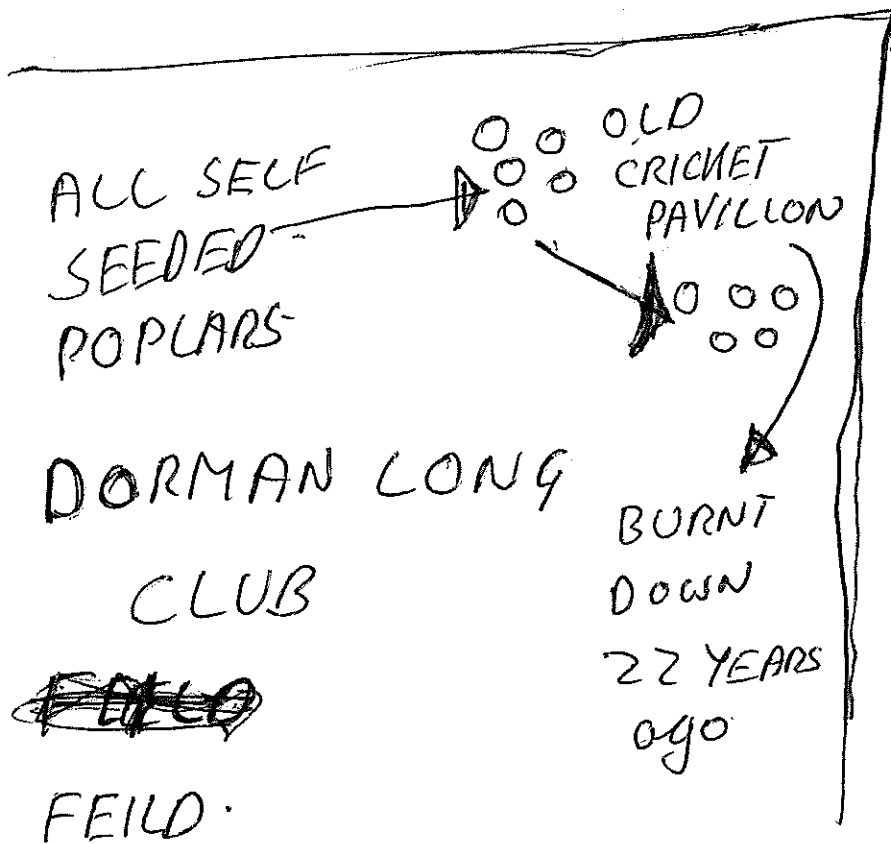 ALL SELF
SEEDED
POPLARS
OLD
CRICKET
PAVILLON
DORMAN LONG
CLUB
FEILD.
BURNT
DOWN
22 YEARS
ago